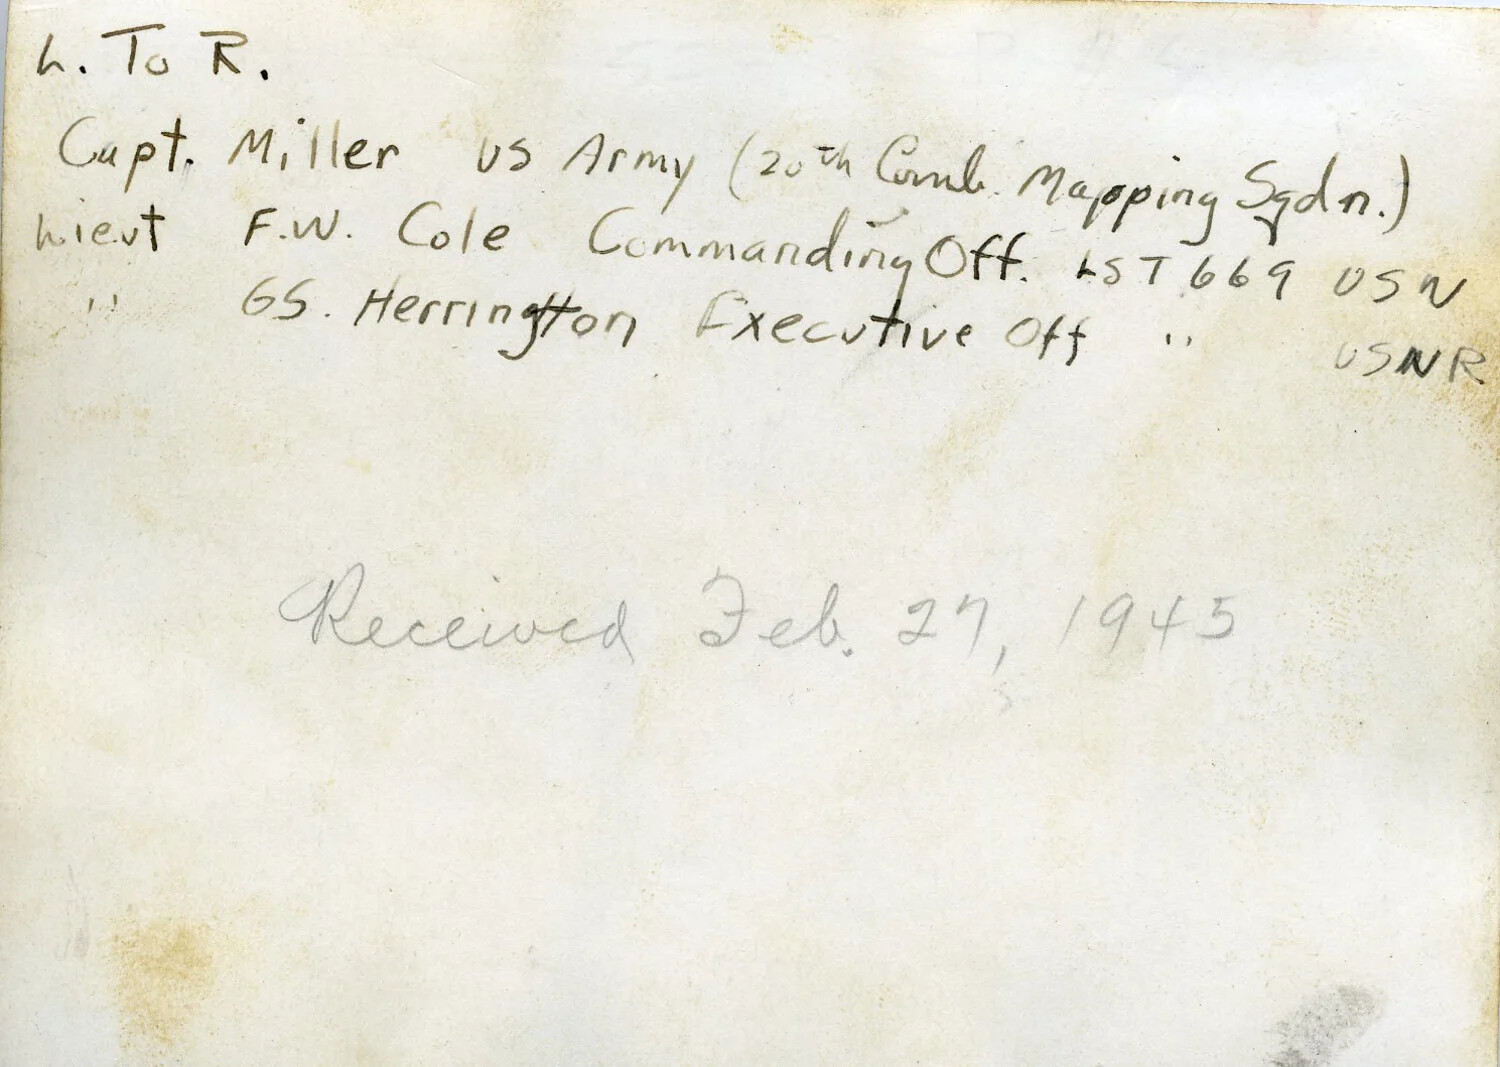 L. To R.
Capt. Miller US Army (20th Comb. Mapping Sqdn.)
Lieut F.W. Cole Commanding Off. LST 669 USN
" GS. Herrington Executive Off " USNR
Received Feb. 27, 1945